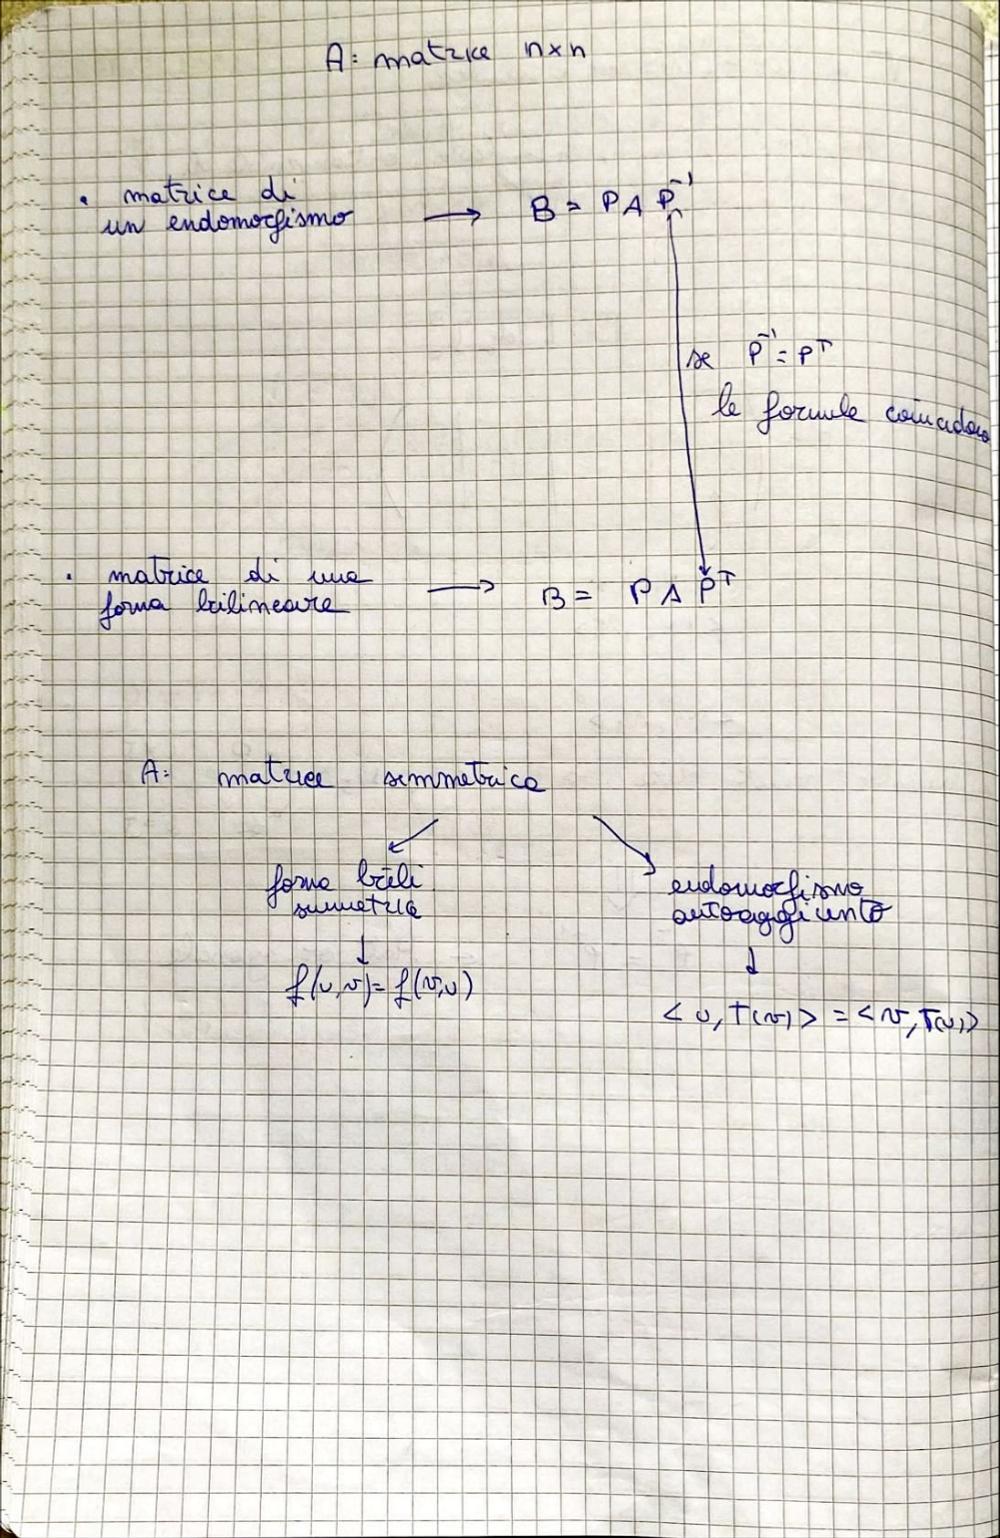 A: matrice n×n
• matrice di
un endomorfismo → B = P A P⁻¹
se P⁻¹ = Pᵀ
le formule coincidono
• matrice di una
forma bilineare → B = P A Pᵀ
A: matrice simmetrica
forma bili
simmetrica
endomorfismo
autoaggiunto
f(u,v) = f(v,u)
< u, T(v) > = < v, T(u) >